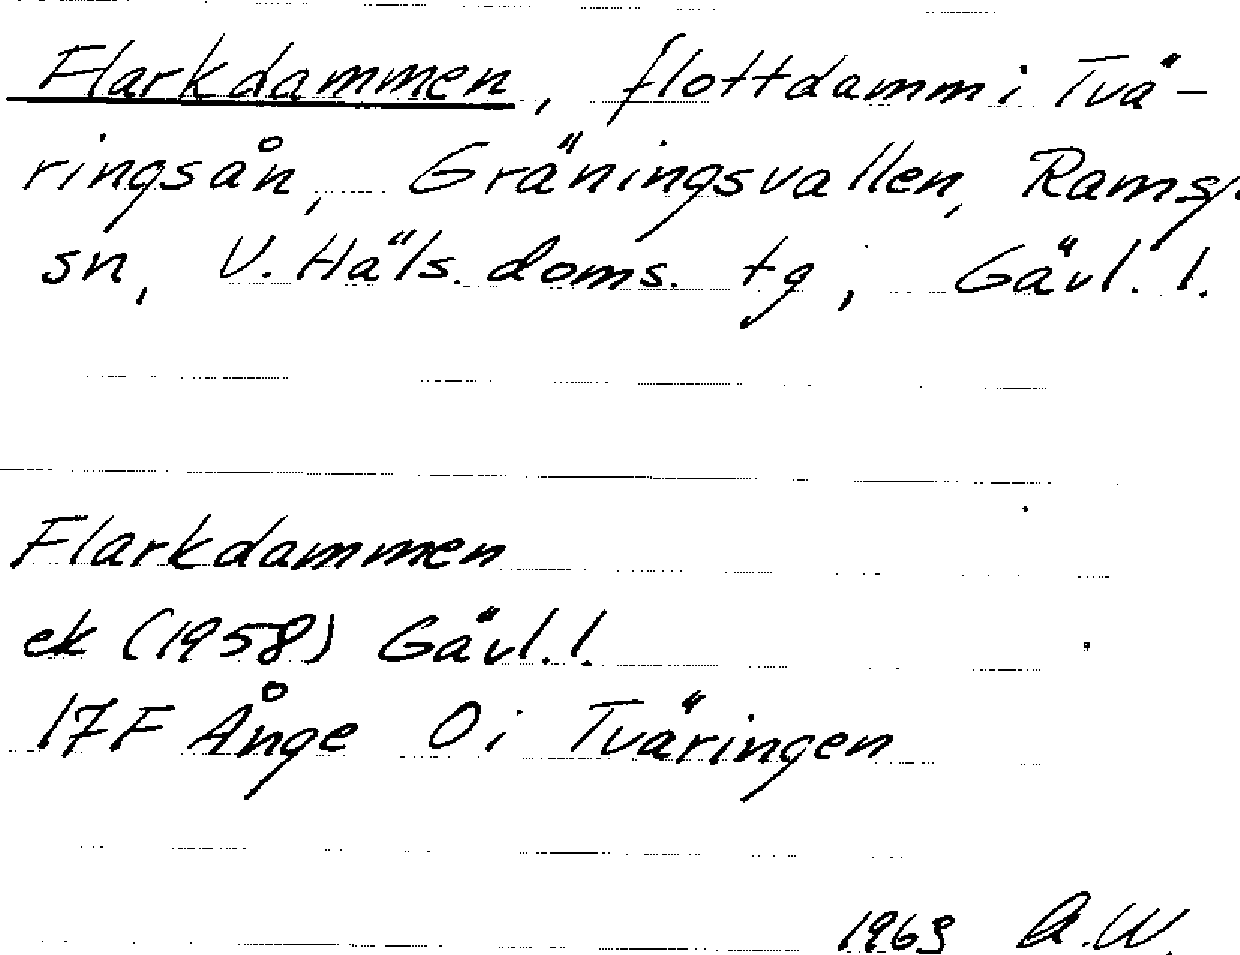 Flarkdammen, flottdamm i Tvä-
ringsån, Gräningsvallen, Ramsj.
sn, V. Häls. doms. tg, Gävl. l.
Flarkdammen
ek (1958) Gävl. l.
17F Ånge O i Tväringen
1963 A.W.